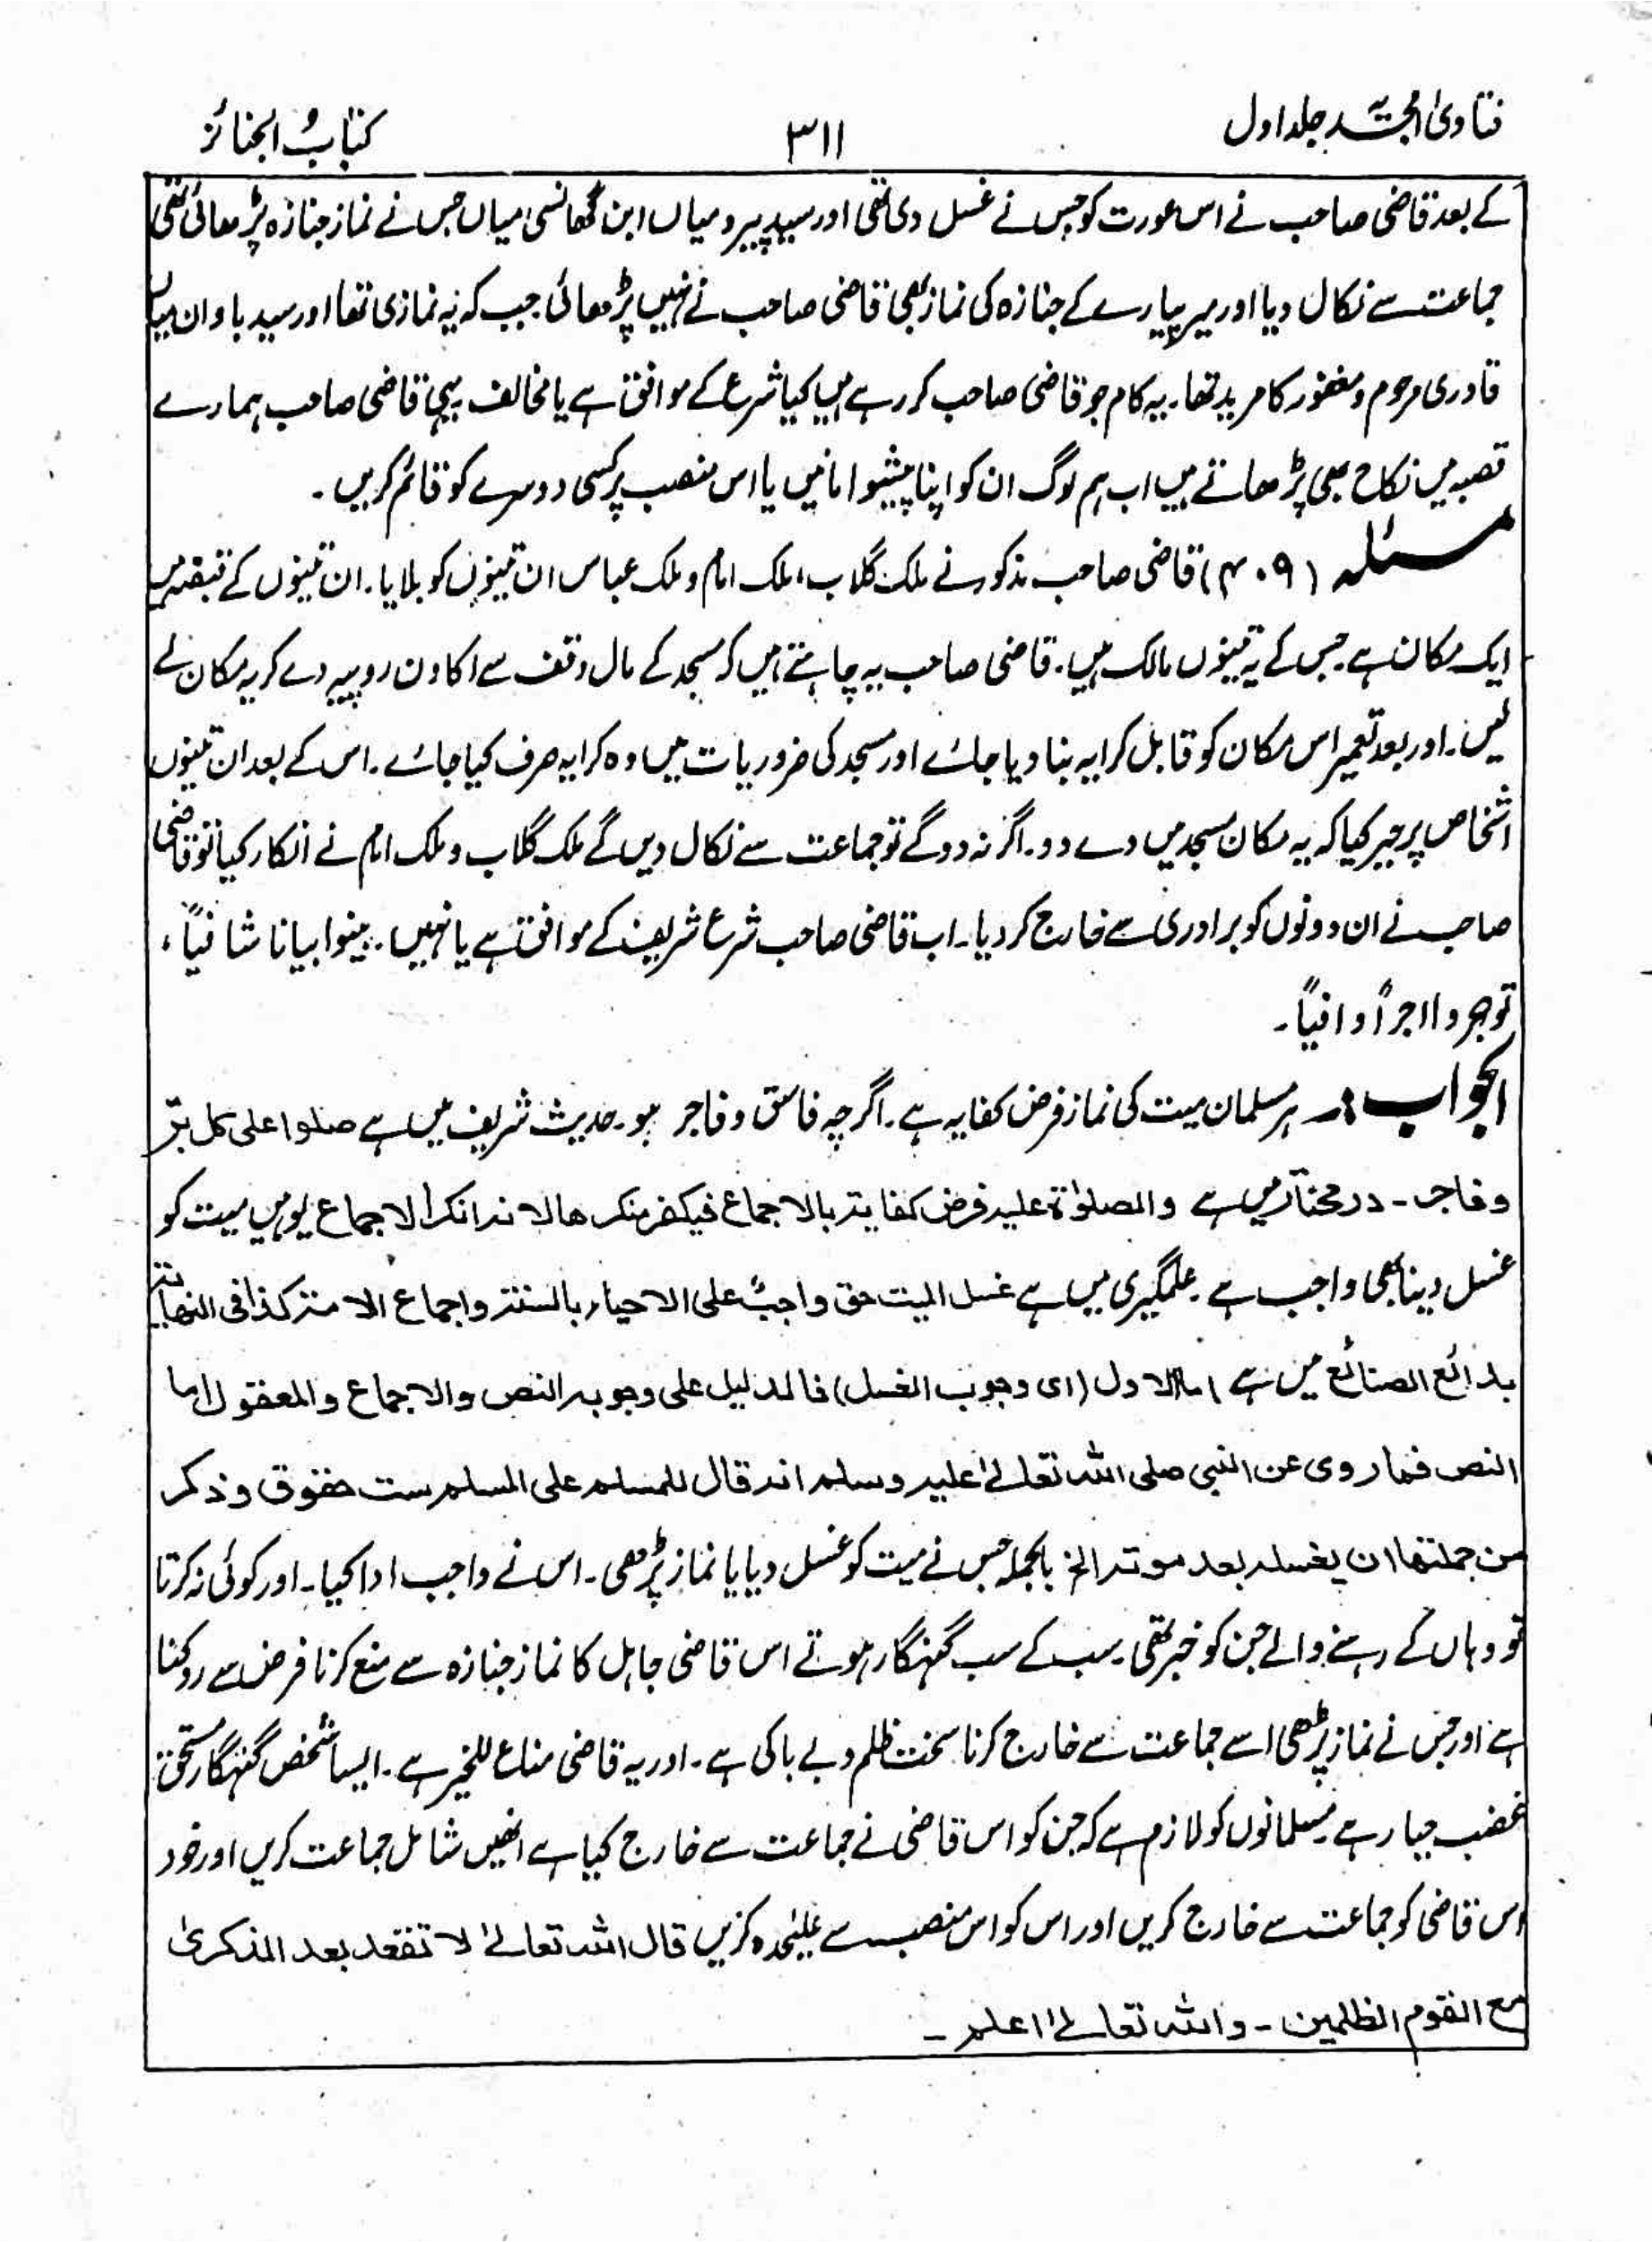 فتاویٰ امجدیہ جلد اول
۳۱۱
کتابُ الجنائز
کے بعد قاضی صاحب نے اس عورت کو جس نے غسل دی تھی اور سید پیرو میاں ابن گھانسی میاں جس نے نماز جنازہ پڑھائی تھی
جماعت سے نکال دیا اور میر پیارے کے جنازہ کی نماز بھی قاضی صاحب نے نہیں پڑھائی جب کہ یہ نمازی تھا اور سید باوان میاں
قادری مرحوم و مغفور کا مرید تھا۔ یہ کام جو قاضی صاحب کر رہے ہیں کیا شرع کے موافق ہے یا مخالف یہی قاضی صاحب ہمارے
قصبہ میں نکاح بھی پڑھاتے ہیں اب ہم لوگ ان کو اپنا پیشوا مانیں یا اس منصب پر کسی دوسرے کو قائم کریں ۔
مسئلہ (۴۰۹) قاضی صاحب مذکور نے ملک گلاب، ملک امام و ملک عباس ان تینوں کو بلایا۔ ان تینوں کے قبضہ میں
ایک مکان ہے جس کے یہ تینوں مالک ہیں۔ قاضی صاحب یہ چاہتے ہیں کہ مسجد کے مال وقف سے اکاون روپیہ دے کر یہ مکان لے
لیں۔ اور بعد تعمیر اس مکان کو قابل کرایہ بنا دیا جائے اور مسجد کی ضروریات میں وہ کرایہ صرف کیا جائے۔ اس کے بعد ان تینوں
اشخاص پر جبر کیا کہ یہ مکان مسجد میں دے دو۔ اگر نہ دوگے تو جماعت سے نکال دیں گے ملک گلاب و ملک امام نے انکار کیا تو قاضی
صاحب نے ان دونوں کو برادری سے خارج کر دیا۔ اب قاضی صاحب شرع شریف کے موافق ہے یا نہیں ۔ بینوا بیانا شافیاً،
توجروا اجراً وافیاً۔
الجواب:۔ ہر مسلمان میت کی نماز فرض کفایہ ہے۔ اگرچہ فاسق و فاجر ہو۔ حدیث شریف میں ہے صلوا علی کل برّ
وفاجر۔ درمختار میں ہے والصلوٰۃ علیہ فرض کفایۃ بالاجماع فیکفر منکرھا لانہ انکر الاجماع یوہیں میت کو
غسل دینا بھی واجب ہے۔ علمگیری میں ہے غسل المیت حق واجبٌ علی الاحیاء بالسنۃ واجماع الامۃ کذا فی النھایۃ
بدائع الصنائع میں ہے اما الاول (ای وجوب الغسل) فالدلیل علی وجوبہ النص والاجماع والمعقول اما
النص فما روی عن النبی صلی اللہ تعالیٰ علیہ وسلم انہ قال للمسلم علی المسلم ست حقوق وذکر
من جملتھا ان یغسلہ بعد موتہ الخ بالجملہ جس نے میت کو غسل دیا یا نماز پڑھی۔ اس نے واجب ادا کیا۔ اور کوئی نہ کرتا
تو وہاں کے رہنے والے جن کو خبر تھی۔ سب کے سب گنہگار ہوتے اس قاضی جاہل کا نماز جنازہ سے منع کرنا فرض سے روکنا
ہے اور جس نے نماز پڑھی اسے جماعت سے خارج کرنا سخت ظلم و بے باکی ہے۔ اور یہ قاضی مناع للخیر ہے۔ ایسا شخص گنہگار مستحق
غضب جبار ہے مسلمانوں کو لازم ہے کہ جن کو اس قاضی نے جماعت سے خارج کیا ہے انھیں شامل جماعت کریں اور خود
اس قاضی کو جماعت سے خارج کریں اور اس کو اس منصب سے علیٰحدہ کریں قال اللہ تعالیٰ لا تقعد بعد الذکریٰ
مع القوم الظٰلمین۔ واللہ تعالیٰ اعلم۔